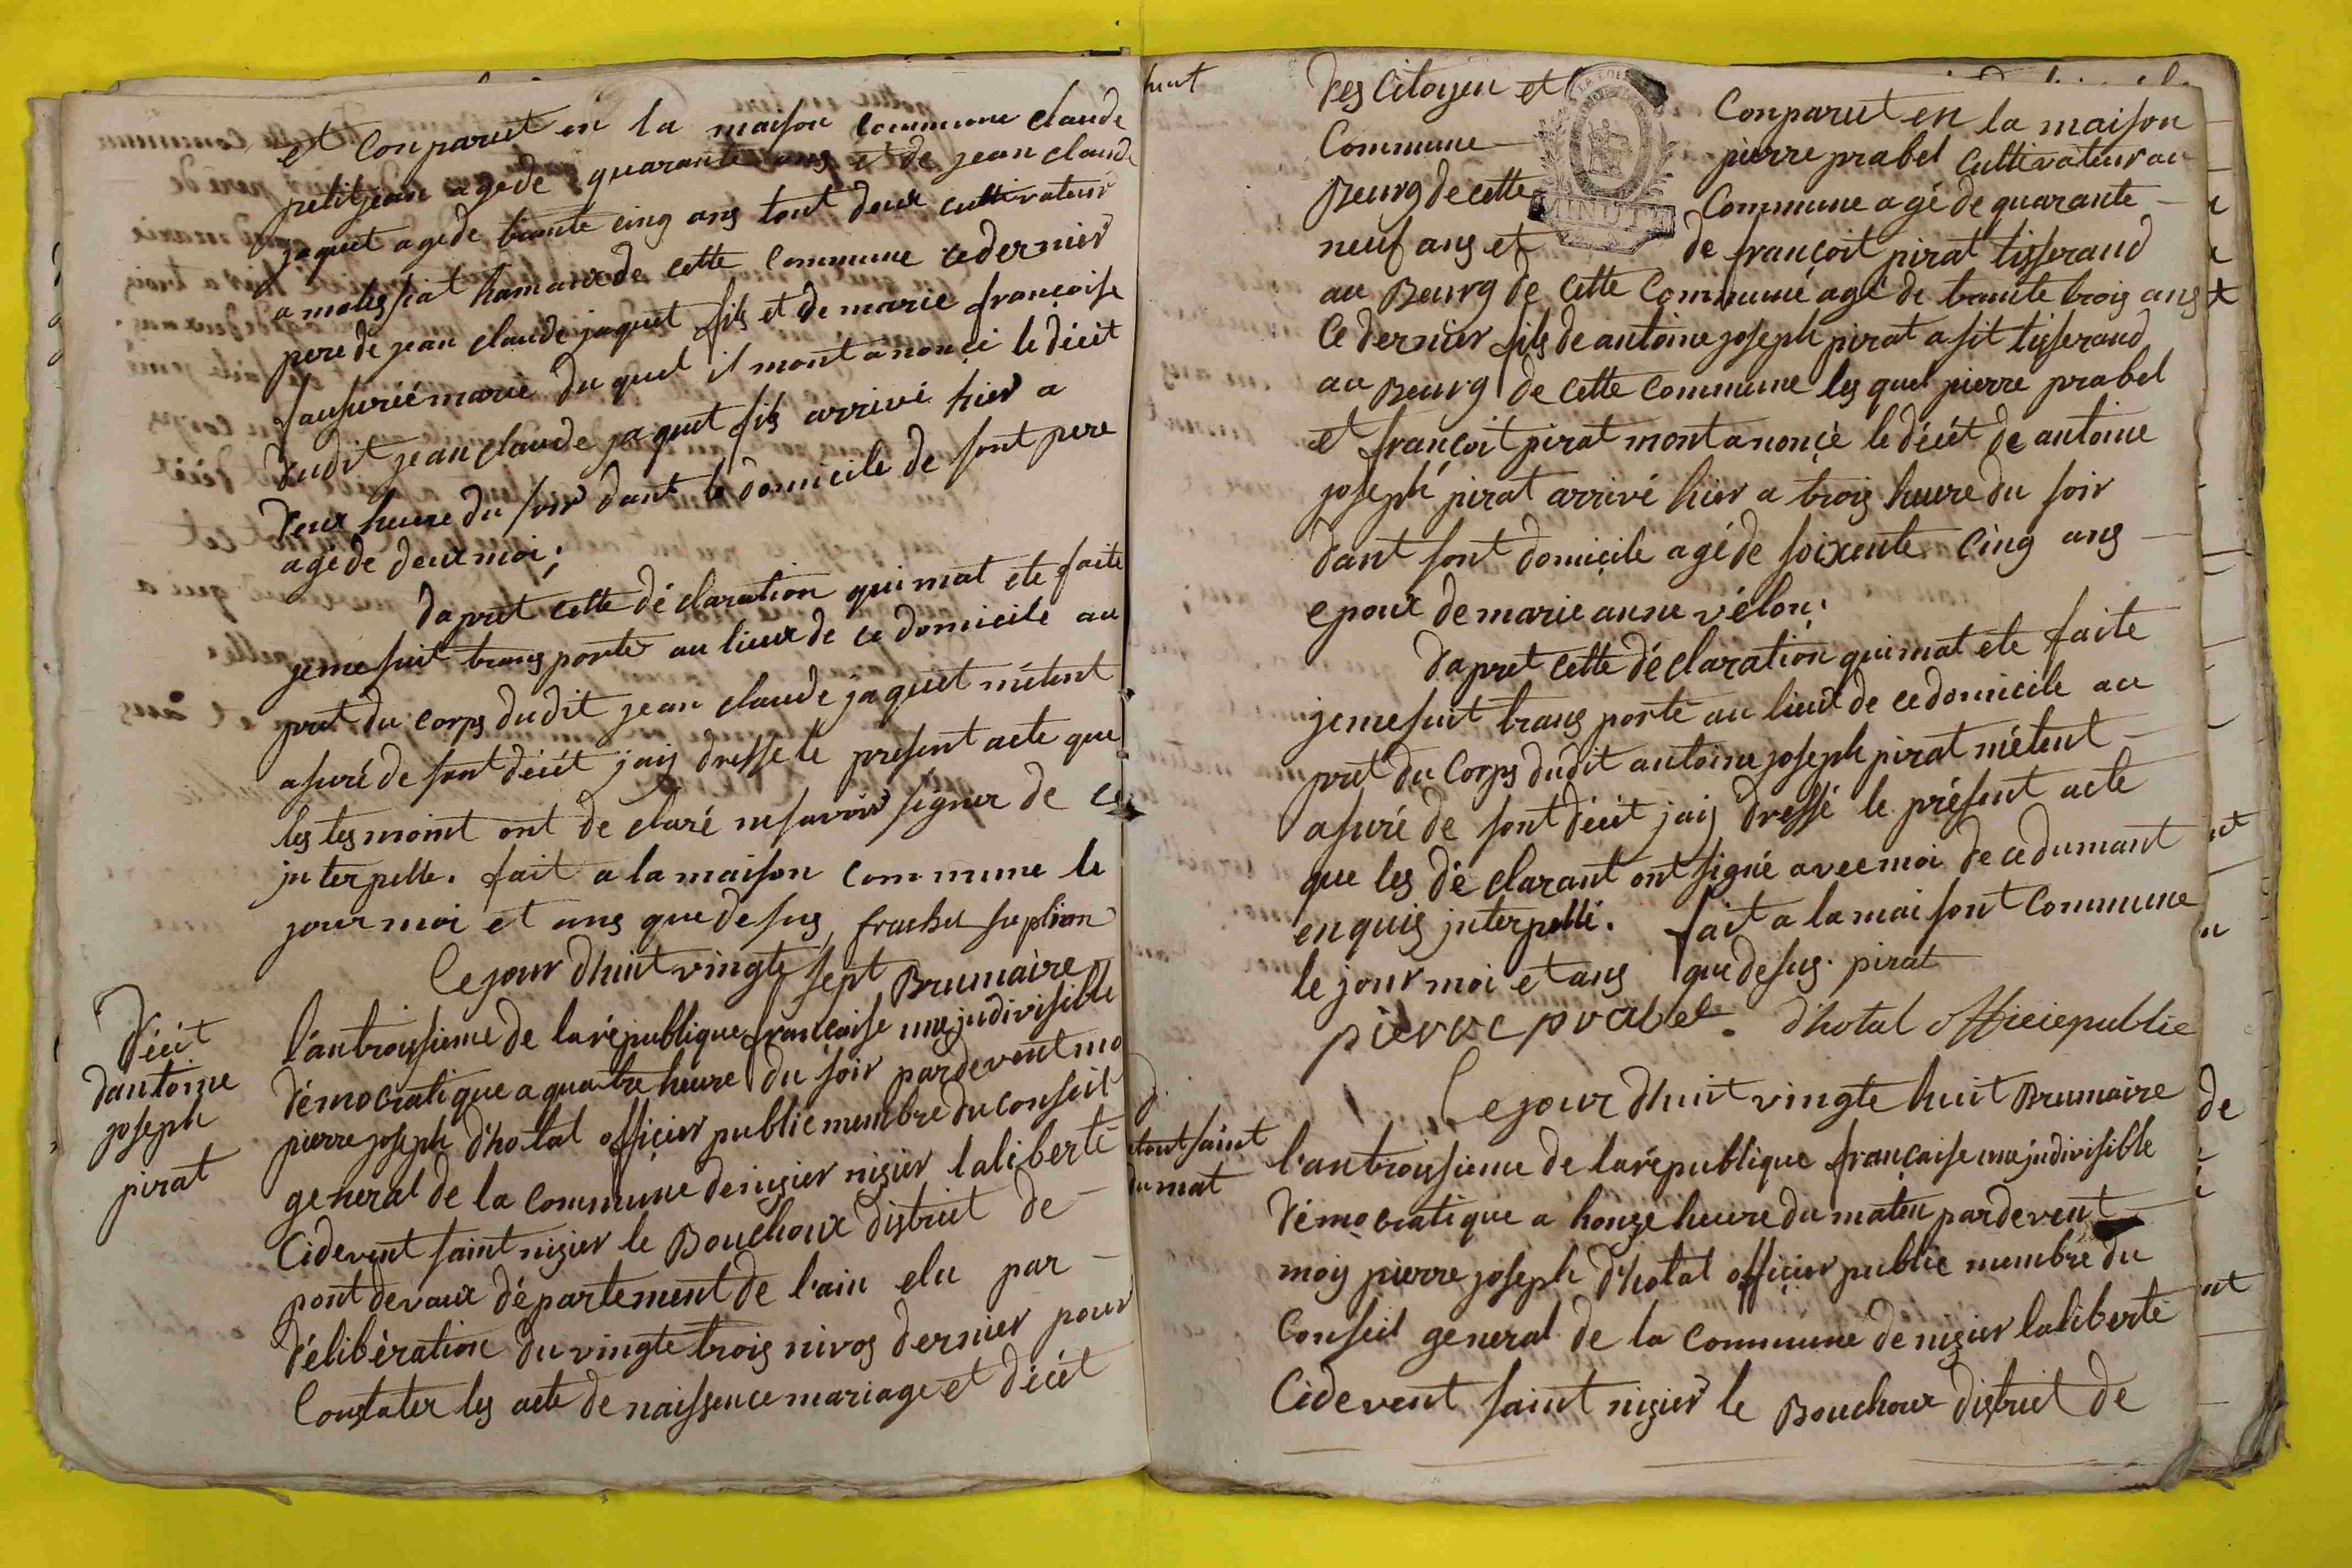 et Conparuet en la maison commune claude
petitjean agede quarante ans et de jean claude
jaquet agede trante cinq ans tout deux cultivateur
a molissiat hamaux de cette commune cedernier
pere de jean claude jaquet fils et de marie françoise
marié du quel il mont anonçé le décét
dudit jean claude jaquet fils arrivé hier a
deux heure du soir dant le domicile de sont pere
agé de deux moi;
dapret cette déclaration qui mat ete faite
jeme suit transporté au lieux de ce domicile au
pret du corps dudit jean claude jaquet métent
asuré de sont décét jais dressé le present acte que
les tesmoint ont de claré ne savoir signer de ce
jnterpellé. fait a la maison commune le
jour moi et ans que desus
Le jour dhuit vingte sept Brumaire
l'an troissieme de la république française une jndivisible
démocratique a quatre heure du soir pardevent mo
pierre joseph d'hotal officier public membre du conseil
general de la commune de nisier nisier la liberté
Cidevent saint nisier le Bouchoux district de
pont devaux département de l'ain elu par
délibération du vingte trois nivos dernier pour
Constater les acte de naissence mariage et décét
Décét
dantoine
joseph
pirat
des Citoyen et Conparuet en la maison
Commune pierre prabel cultivateur au
Bourg de cette Commune agé de quarante
neuf ans et de françoit pirat tisserand
au Bourg de cette Commune agé de trante trois ans
Ce dernier fils de antoine joseph pirat asit tisserand
au Bourg de cette Commune les quel pierre prabel
et françoit pirat mont anonçé le décét de antoine
joseph pirat arrivé hier a trois heure du soir
dant sont domicile agé de soixente cinq ans
epoux de marie anne vélon;
dapret cette déclaration qui mat ete faite
jeme suit trans porté au lieux de ce domicile au
pret du Corps dudit antoine joseph pirat métent
asuré de sont décét jais dressé le présent acte
que les dé clarant ont signé avec moi de ce dumant
en quis jnterpellé. fait a la maisont Commune
le jour moi et ans que desus. pirat
pierre prabel. d'hotal officie publie
Le jour dhuit vingte huit Brumaire
l'an troissieme de la république française une jndivisible
démocratique a honze heure du matin pardevent
mois pierre joseph d'hotal officier public membre du
Conseil general de la commune de nisier la liberté
Cide vent saint nisier le Bouchoux district de